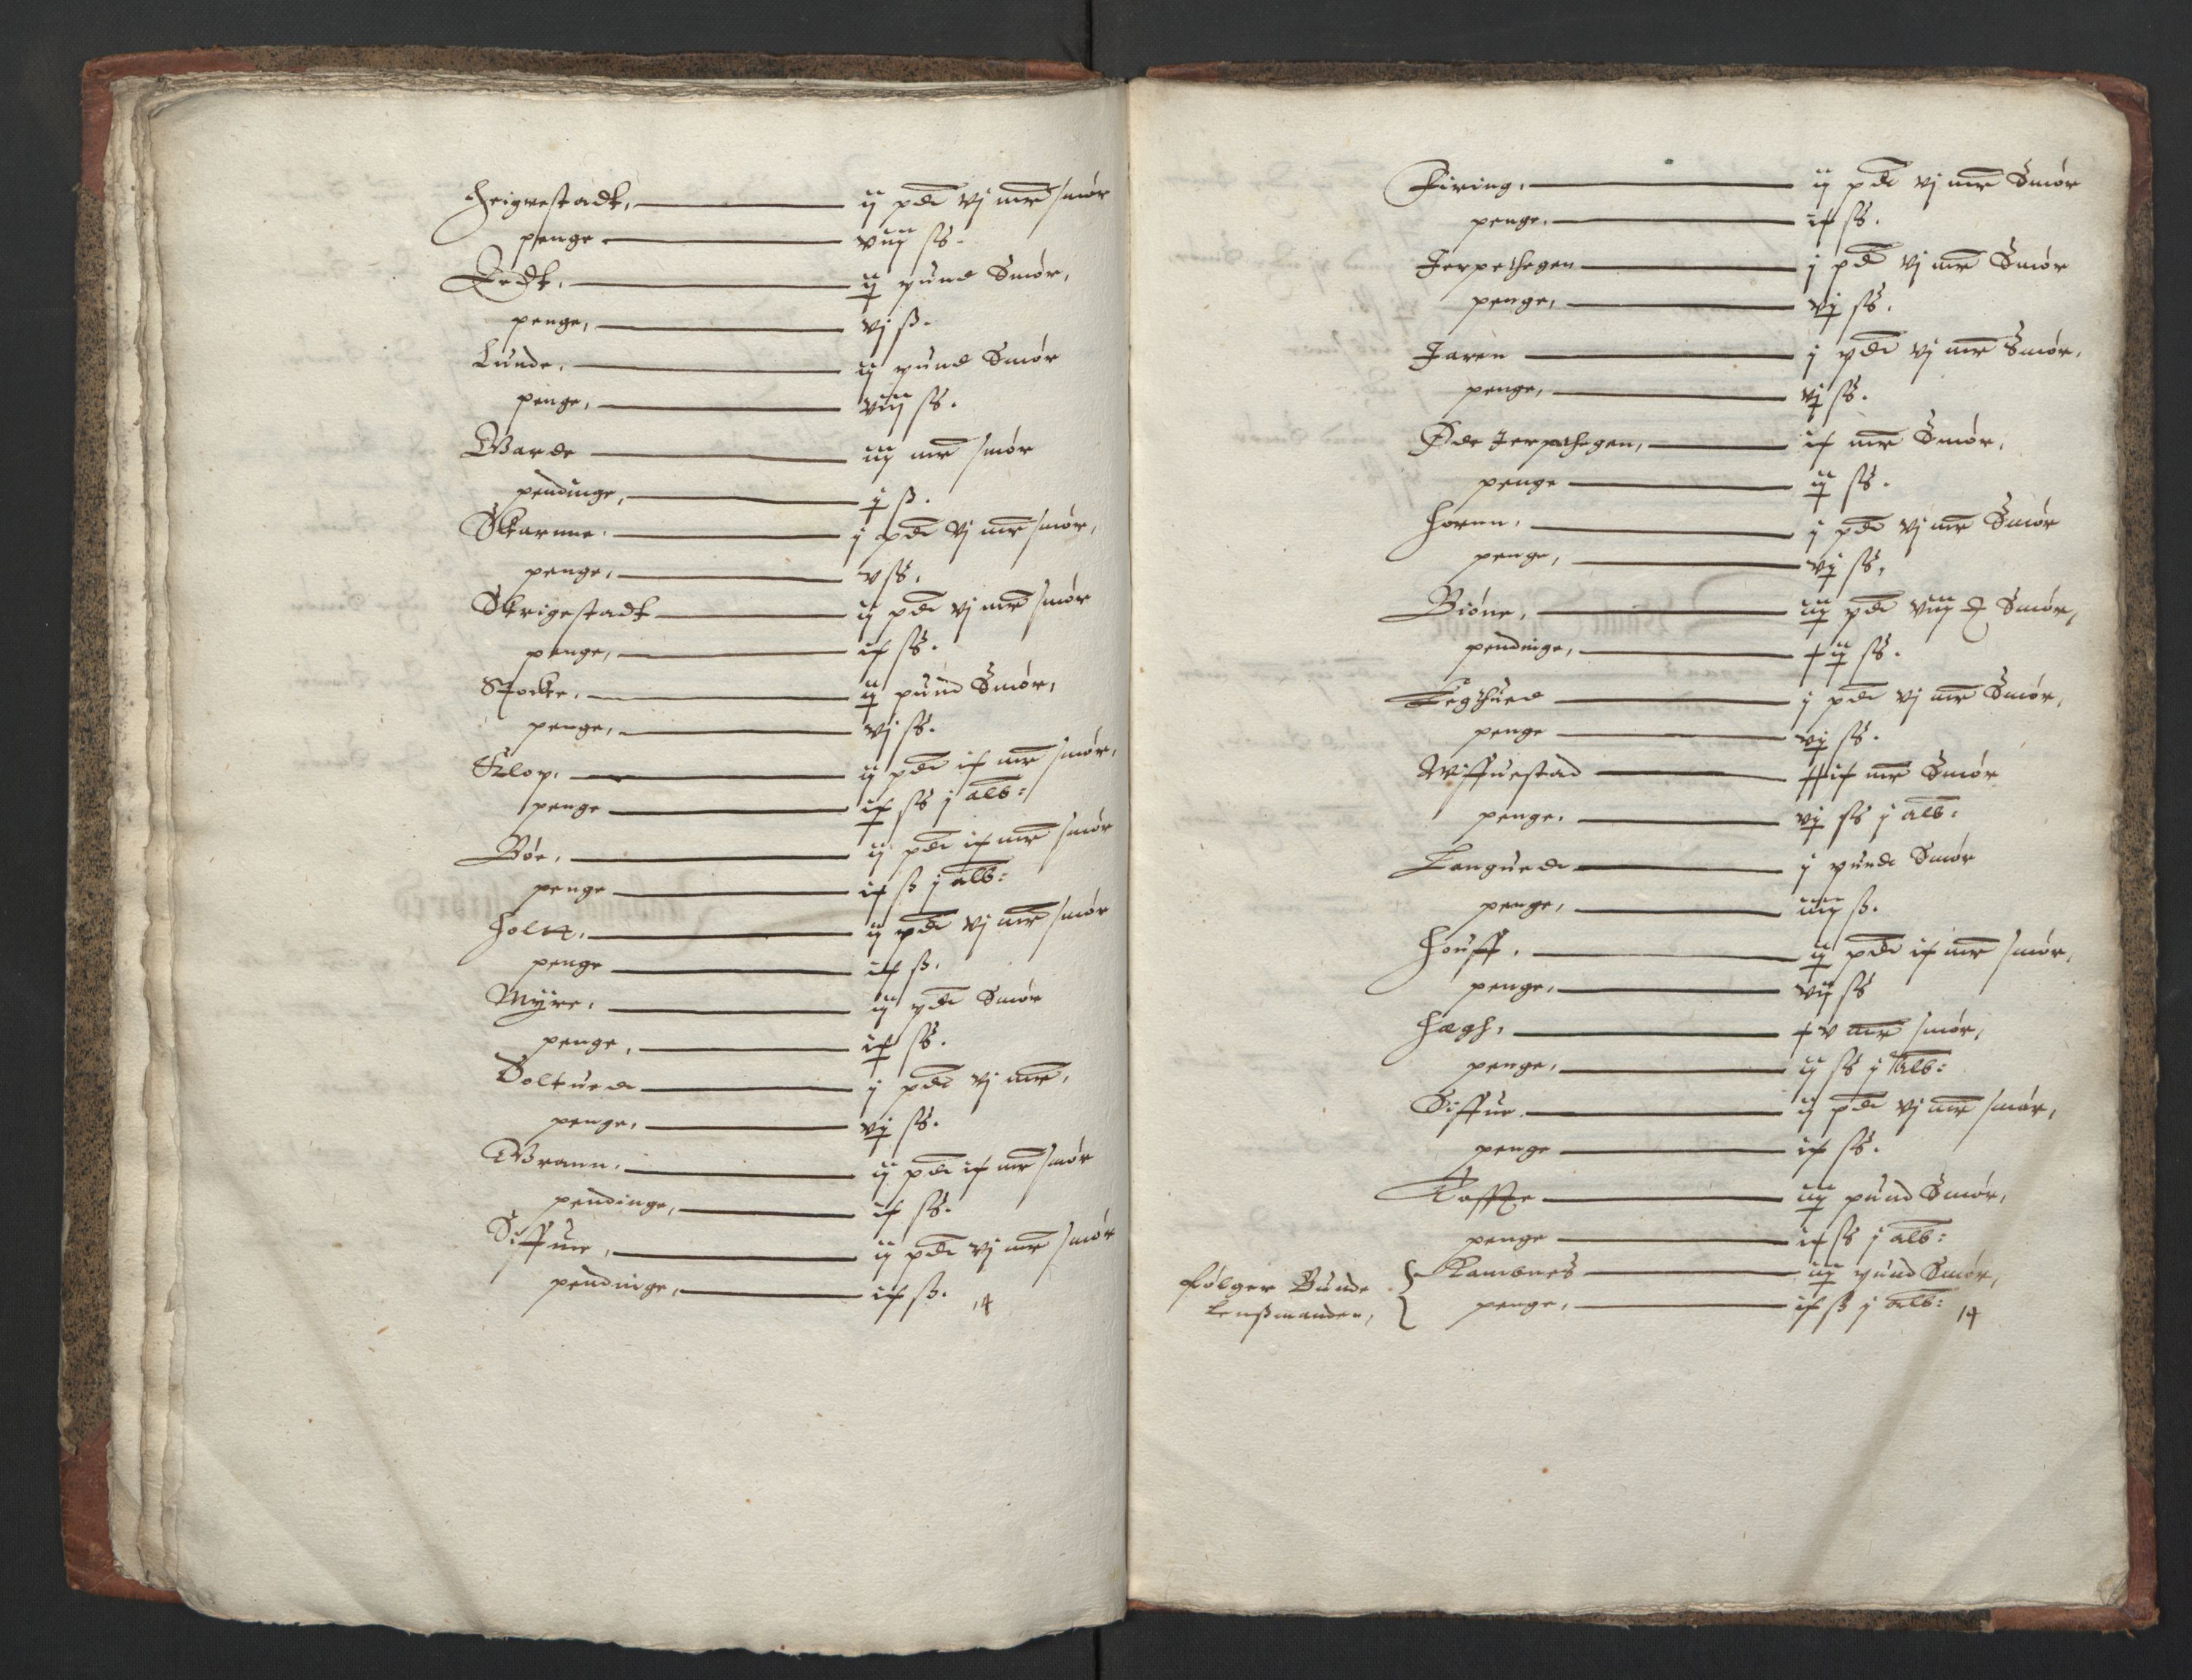 Heigrestadt, ij pd vj mr smør
penge viij ss.
Tedt, ij pund Smør,
penge, vj ß.
Lunde, ij pund Smør
penge, viij ss.
Warde iij mr smør
pendinge, j ß.
Skarnne. j pd vj mr smør,
penge, v ss,
Skrigestadt ij pd vj mr smør
penge, ix ss.
Stocke. ij pund Smør,
penge, vj ss.
Klop. ij pd ix mr smør,
penge ix ss j alb:
Bøe, ij pd ix mr smør
penge ix ß j alb:
Holtt. ij pd vj mr smør
penge ix ß.
Myre, ij pd Smør
penge, ix ss.
Doltued j pd vj mr,
penge, vij ss.
Wrann. ij pd ix mr smør
pendinge, ix ss.
Siffue, ij pd vj mr smør
pendinge, ix ß. 14
Firing. ij pd vj mr Smør
penge. ix ss.
Jerpethegen j pd vj mr Smør
penge, vij ss.
Jaren j pd vj mr Smør,
penge, vij ss.
Øde Jerpethegen, ix mr Smør,
penge ij ss.
Hornn, j pd vj mr Smør
penge, vij ss,
Biøne, iij pd viij Smør,
pendinge, xij ss.
Teghued j pd vj mr Smør,
penge vij ss.
Wiffuestad xxix mr Smør
penge. vij ss j alb:
Langued j pund Smør
penge, iiij ß.
Houff, ij pd ix mr smør,
penge, vij ss
Hægh, xv mr smør,
penge, ij ss j alb:
Siffue. ij pd vj mr smør,
penge ix ss.
Toffte iij pund Smør,
penge ix ss j alb:
Følger Bunde Kambnes iij pund Smør,
Lenßmanden, penge, ix ß j alb: 14